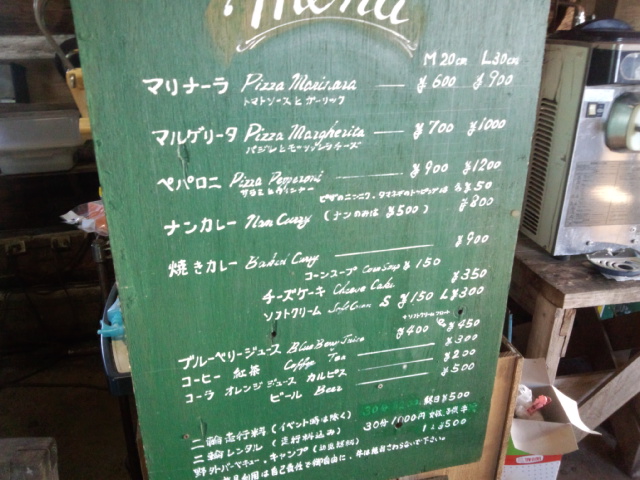 Menu
M 20cm L 30cm
マリナーラ Pizza Marinara ¥600 ¥900
トマトソースとガーリック
マルゲリータ Pizza Margherita ¥700 ¥1000
バジルとモッツァレラチーズ
ペパロニ Pizza Peperoni ¥900 ¥1200
ピザのニンニク、タマネギのトッピングは 各¥50
ナンカレー Nan Curry (ナンのみは ¥500) ¥800
焼きカレー Baked Curry ¥900
コーンスープ Corn Soup ¥150
チーズケーキ Cheese Cake ¥350
ソフトクリーム Soft Cream S ¥150 L ¥300
ブルーベリージュース Blue Berry Juice ¥400 ¥450
コーヒー 紅茶 Coffee Tea ¥300
コーラ オレンジジュース カルピス ¥200
ビール Beer ¥500
二輪走行料 (イベント時は除く) ¥500
二輪レンタル (走行料込み) 30分 1000円
¥500